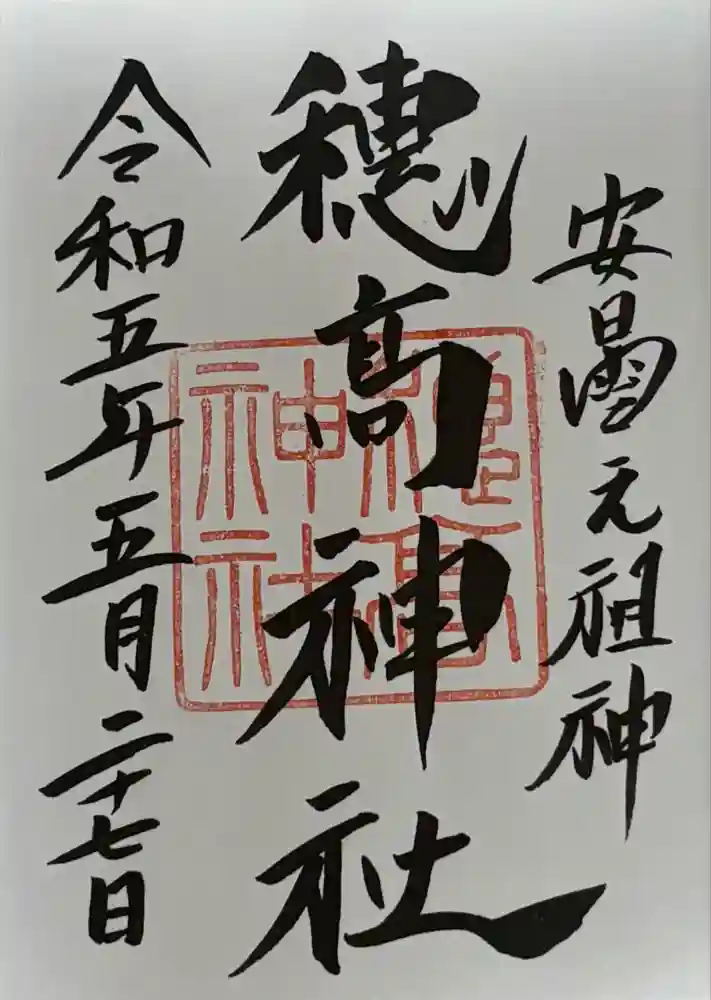 安曇元祖神
穂高神社
穂高神社
令和五年五月二十七日